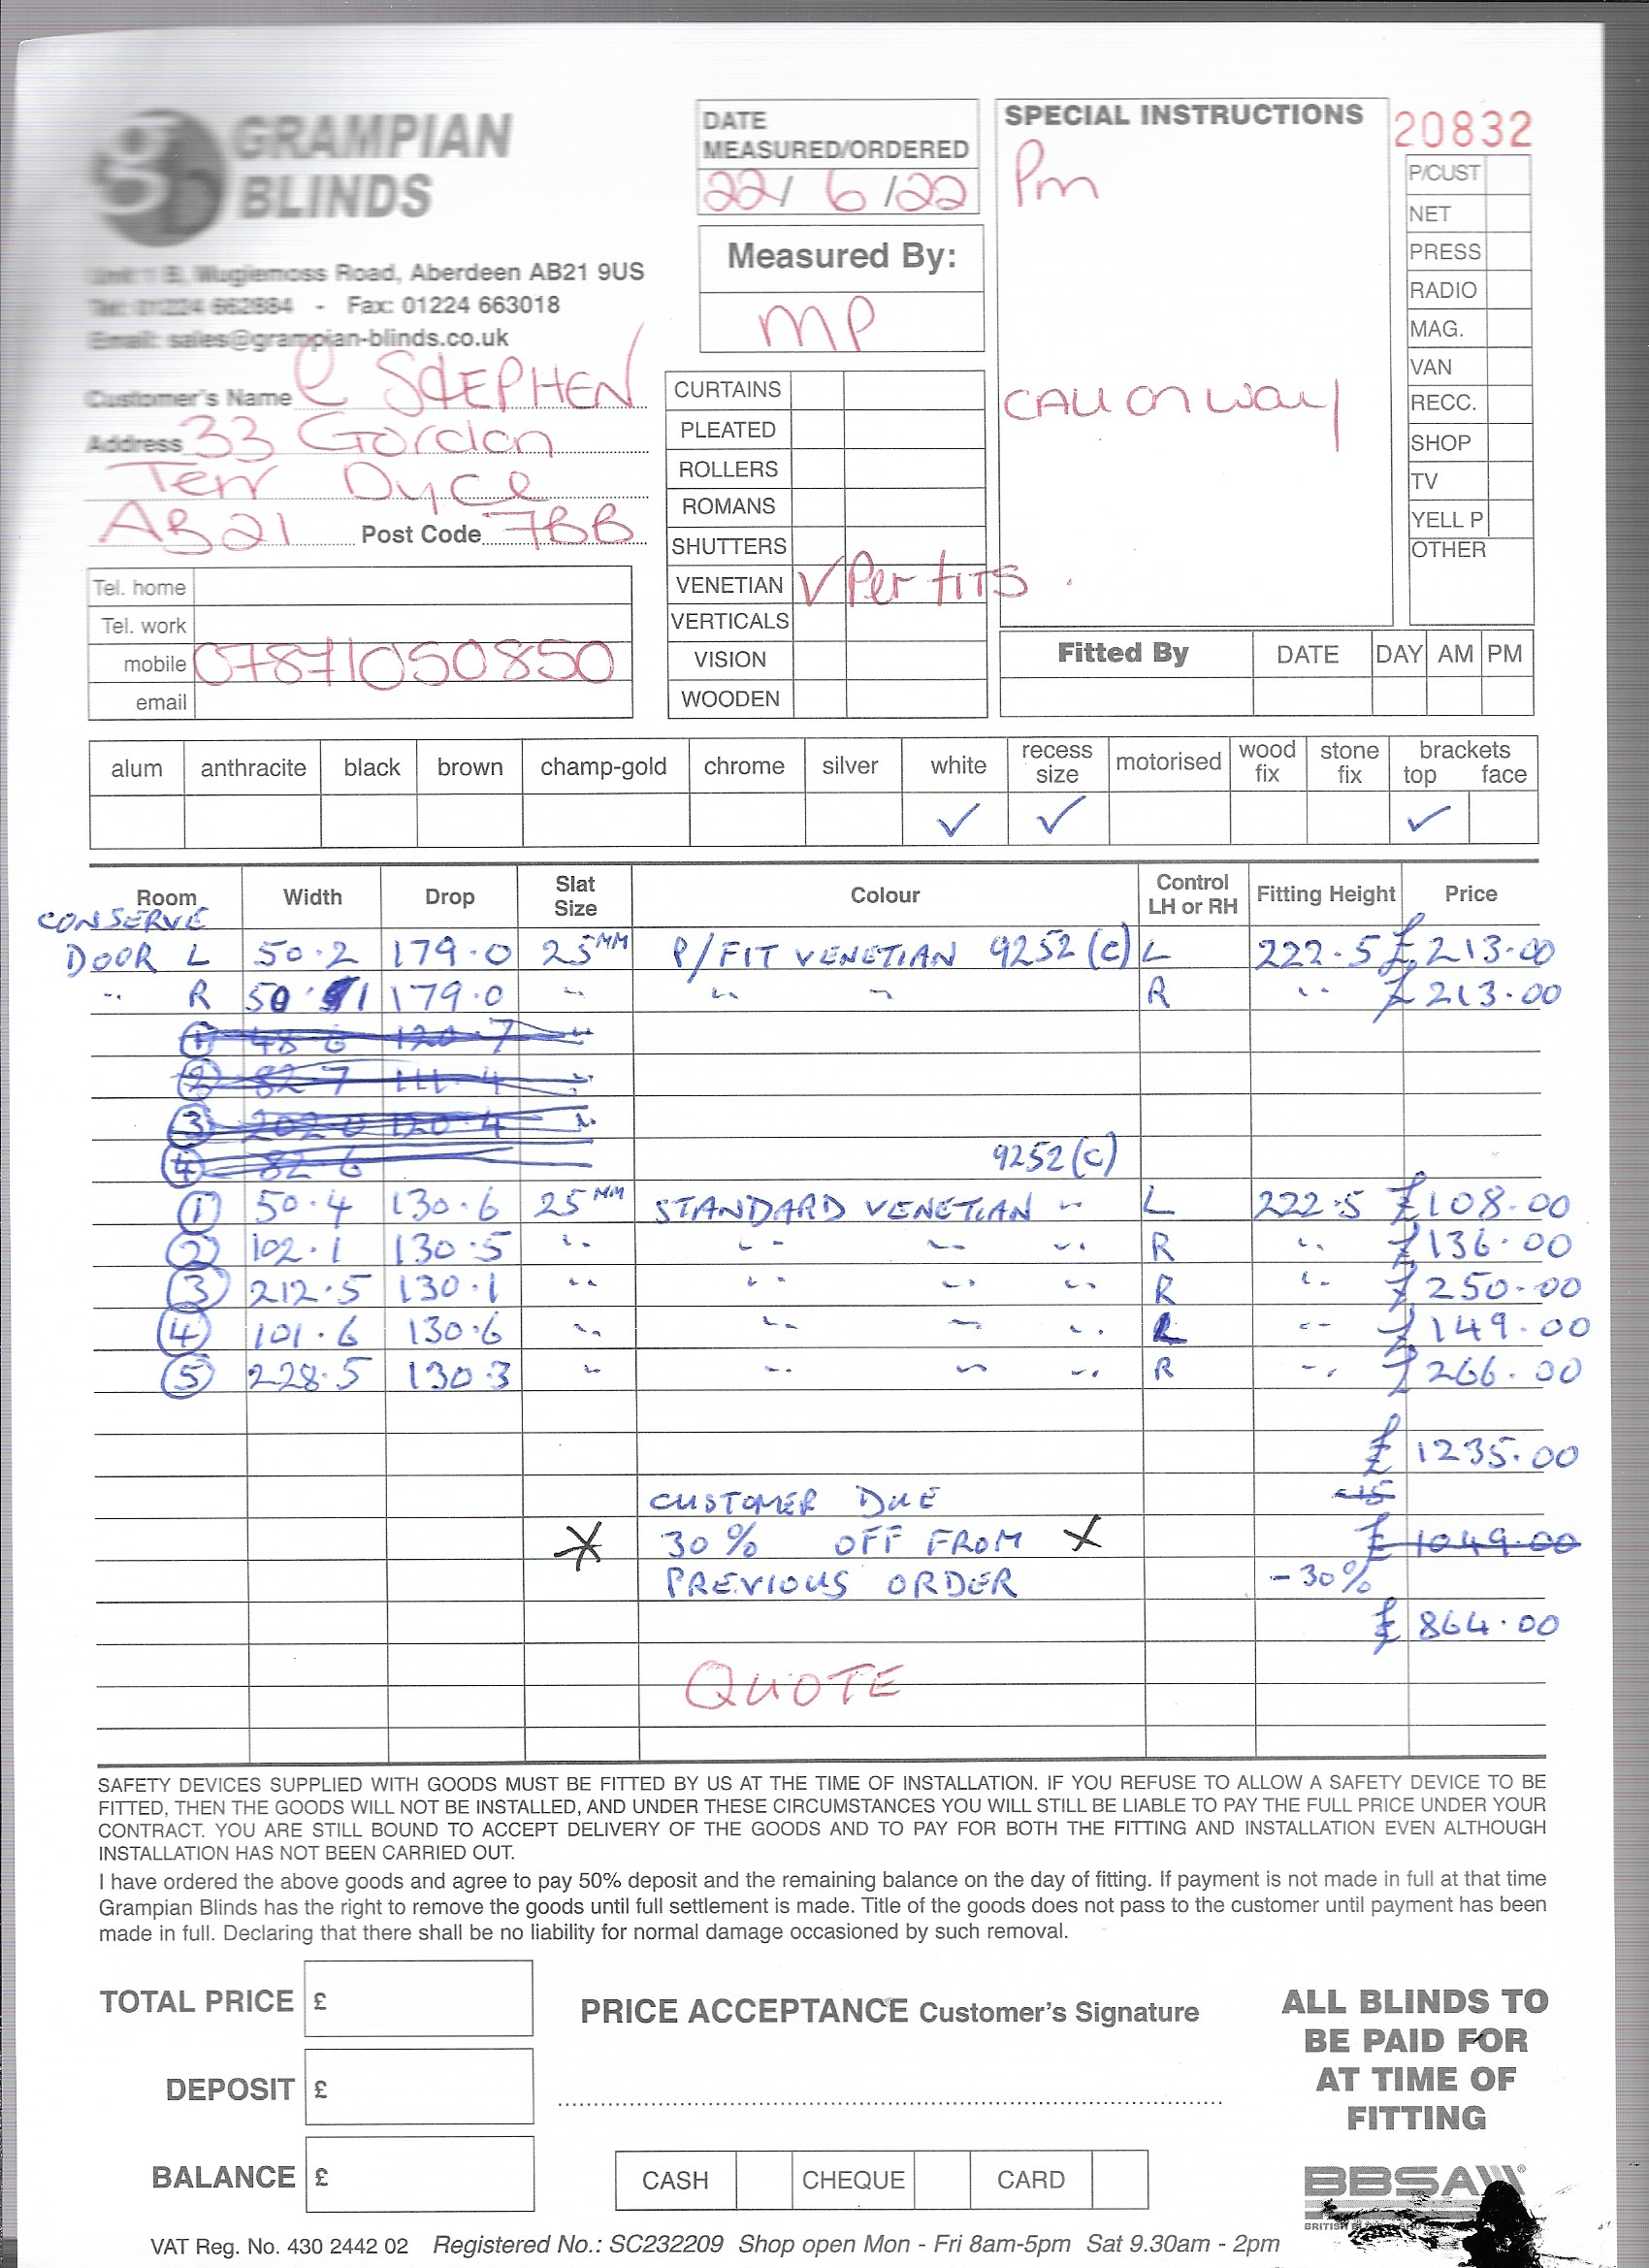 GRAMPIAN
BLINDS
Unit 1 B, Mugiemoss Road, Aberdeen AB21 9US
Tel: 01224 662884 - Fax: 01224 663018
Email: sales@grampian-blinds.co.uk
DATE
MEASURED/ORDERED
22/ 6 /22
Measured By:
MP
SPECIAL INSTRUCTIONS
Pm
CALL ON WAY
20832
P/CUST
NET
PRESS
RADIO
MAG.
VAN
RECC.
SHOP
TV
YELL P
OTHER
Customer's Name C STEPHEN
Address 33 Gordon
Terr Dyce
AB21 Post Code 7BB
Tel. home
Tel. work
mobile 07871050850
email
CURTAINS
PLEATED
ROLLERS
ROMANS
SHUTTERS
VENETIAN ✓ Per fits
VERTICALS
VISION
WOODEN
Fitted By DATE DAY AM PM
alum anthracite black brown champ-gold chrome silver white recess size motorised wood fix stone fix brackets top face
✓ ✓ ✓
Room Width Drop Slat Size Colour Control LH or RH Fitting Height Price
CONSERVE
DOOR L 50.2 179.0 25MM P/FIT VENETIAN 9252 (C) L 222.5 £213.00
" R 50.1 179.0 " " " R " £213.00
① 48.6 120.7 "
② 82.7 111.4 "
③ 202.0 120.4 "
④ 82.6 9252 (C)
① 50.4 130.6 25MM STANDARD VENETIAN " L 222.5 £108.00
② 102.1 130.5 " " " " R " £136.00
③ 212.5 130.1 " " " " R " £250.00
④ 101.6 130.6 " " " " L " £149.00
⑤ 228.5 130.3 " " " " R " £266.00
£ 1235.00
CUSTOMER DUE -15
* 30% OFF FROM * £ 1049.00
PREVIOUS ORDER -30%
£ 864.00
QUOTE
SAFETY DEVICES SUPPLIED WITH GOODS MUST BE FITTED BY US AT THE TIME OF INSTALLATION. IF YOU REFUSE TO ALLOW A SAFETY DEVICE TO BE
FITTED, THEN THE GOODS WILL NOT BE INSTALLED, AND UNDER THESE CIRCUMSTANCES YOU WILL STILL BE LIABLE TO PAY THE FULL PRICE UNDER YOUR
CONTRACT. YOU ARE STILL BOUND TO ACCEPT DELIVERY OF THE GOODS AND TO PAY FOR BOTH THE FITTING AND INSTALLATION EVEN ALTHOUGH
INSTALLATION HAS NOT BEEN CARRIED OUT.
I have ordered the above goods and agree to pay 50% deposit and the remaining balance on the day of fitting. If payment is not made in full at that time
Grampian Blinds has the right to remove the goods until full settlement is made. Title of the goods does not pass to the customer until payment has been
made in full. Declaring that there shall be no liability for normal damage occasioned by such removal.
TOTAL PRICE £
DEPOSIT £
BALANCE £
PRICE ACCEPTANCE Customer's Signature
CASH CHEQUE CARD
ALL BLINDS TO
BE PAID FOR
AT TIME OF
FITTING
BBSA
BRITISH
VAT Reg. No. 430 2442 02 Registered No.: SC232209 Shop open Mon - Fri 8am-5pm Sat 9.30am - 2pm